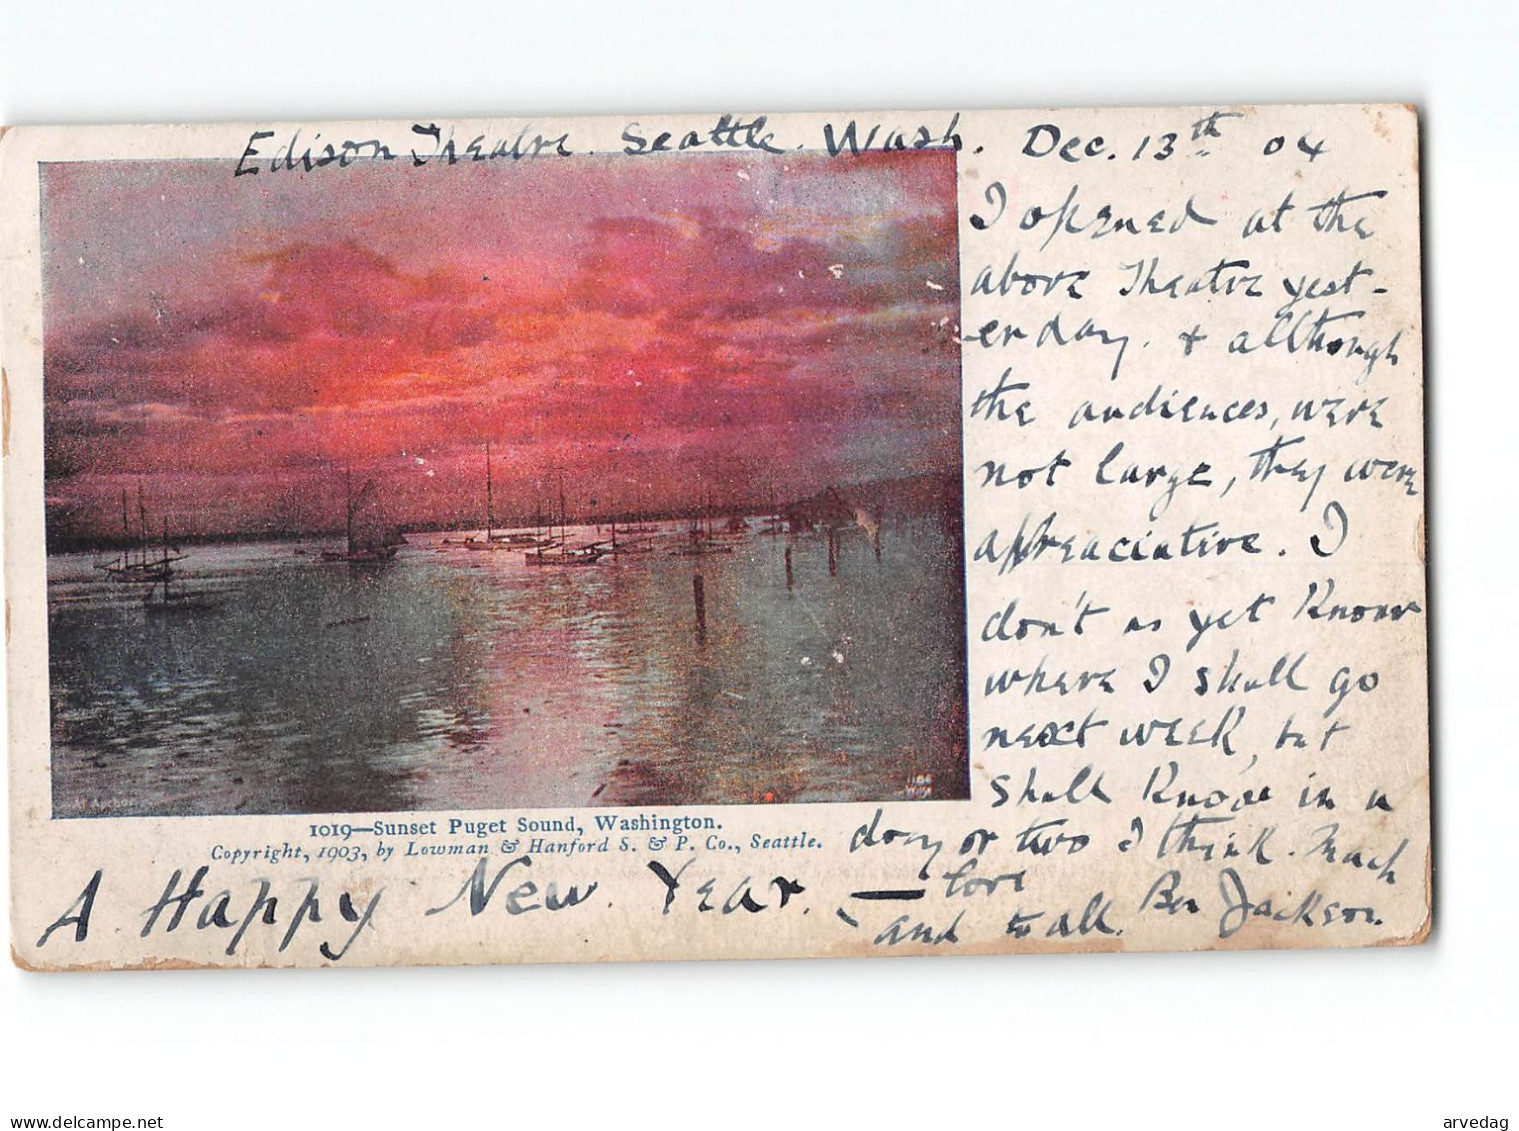 Edison Theatre. Seattle. Wash. Dec. 13th 04
I opened at the
above Theatre yest-
erday. + allthough
the audiences, were
not large, they were
appreaciative. I
don't as yet Know
where I shall go
next week, but
shall Know in a
day or two I think. Much
love
and to all. Ben Jackson.
At Anchor
1019—Sunset Puget Sound, Washington.
Copyright, 1903, by Lowman & Hanford S. & P. Co., Seattle.
A Happy New. Year. —
delcampe.net
arvedag